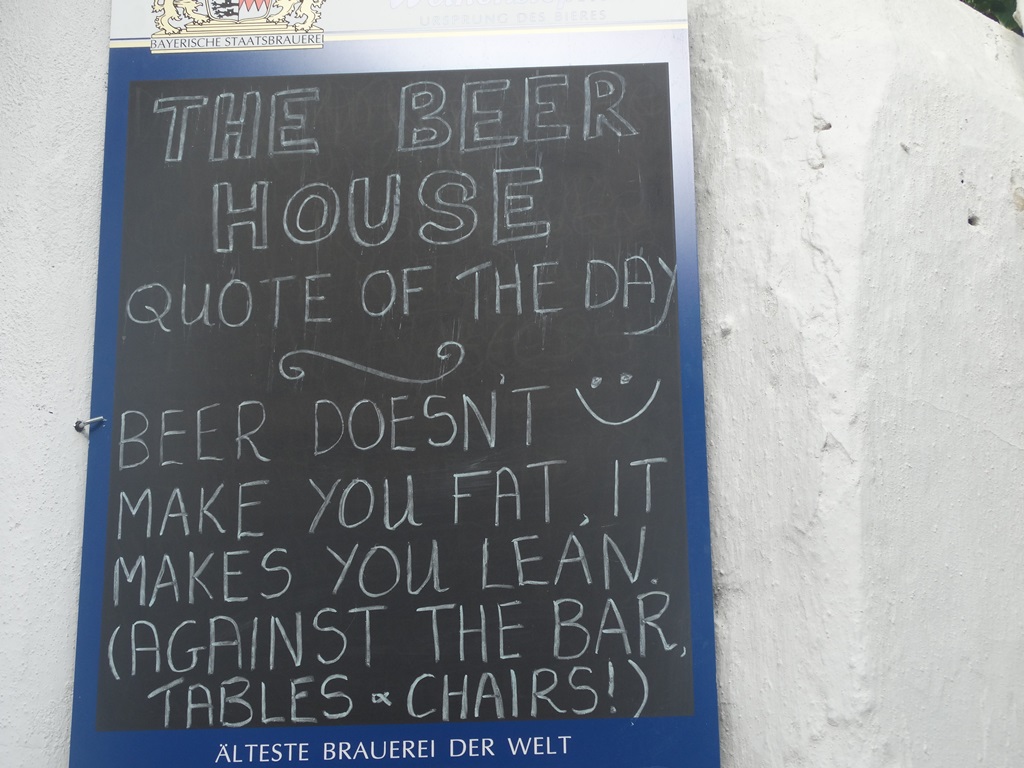 BAYERISCHE STAATSBRAUEREI
URSPRUNG DES BIERES
THE BEER
HOUSE
QUOTE OF THE DAY
BEER DOESN'T
MAKE YOU FAT, IT
MAKES YOU LEAN.
(AGAINST THE BAR,
TABLES & CHAIRS!)
ÄLTESTE BRAUEREI DER WELT